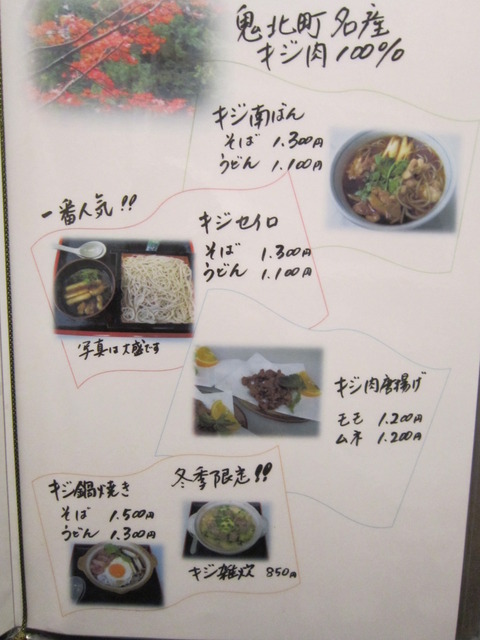 鬼北町名産
キジ肉100%
キジ南ばん
そば 1.300円
うどん 1.100円
一番人気!!
キジセイロ
そば 1.300円
うどん 1.100円
写真は大盛です
キジ肉唐揚げ
モモ 1.200円
ムネ 1.200円
キジ鍋焼き
そば 1.500円
うどん 1.300円
冬季限定!!
キジ雑炊 850円